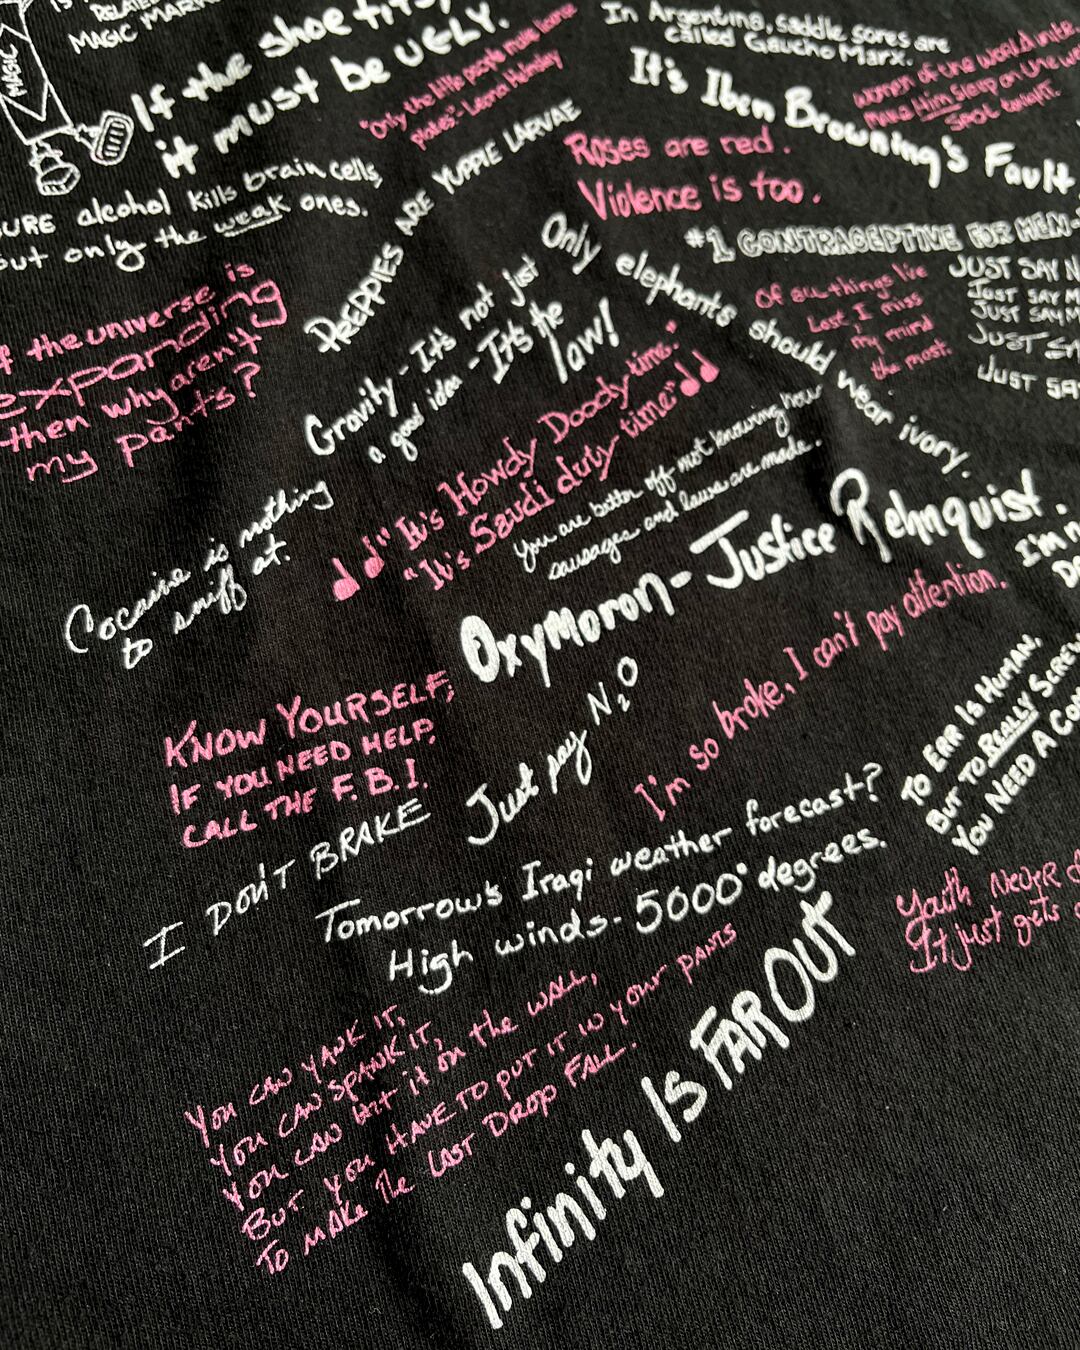 RELATED
MAGIC MARK
MAGIC
If the shoe fits,
it must be UGLY.
"Only the little people make license
plates"- Leona Helmsley
In Argentina, saddle sores are
called Gaucho Marx.
women of the world unite
make Him sleep on the we
spot tonight.
It's Iben Browning's Fault
Roses are red.
Violence is too.
SURE alcohol kills brain cells,
but only the weak ones.
PREPPIES ARE YUPPIE LARVAE
#1 CONTRACEPTIVE FOR MEN-
Only elephants should wear ivory.
Of all things I've
Lost I miss
my mind
the most.
JUST SAY N
JUST SAY M
JUST SAY M
JUST SA
JUST SA
f the universe is
expanding
then why aren't
my pants?
Gravity - It's not just
a good idea - It's the
law!
"It's Howdy Doody time."
"It's Saudi duty time"
You are better off not knowing how
sausages and laws are made.
Cocaine is nothing
to sniff at.
Oxymoron - Justice Rehnquist.
I'm n
Do
KNOW YOURSELF,
IF YOU NEED HELP,
CALL THE F.B.I.
Just pay N₂O
I'm so broke, I can't pay attention.
TO ERR IS HUMAN,
BUT TO REALLY SCREW
YOU NEED A CO
I DON'T BRAKE
Tomorrow's Iraqi weather forecast?
High winds - 5000° degrees.
Youth NeveR
It just gets
YOU CAN YANK IT,
YOU CAN SPANK IT,
YOU CAN HIT it ON the WALL,
BUT YOU HAVE TO PUT IT IN YOUR PANTS
TO MAKE The LAST DROP FALL.
Infinity Is FAR OUT